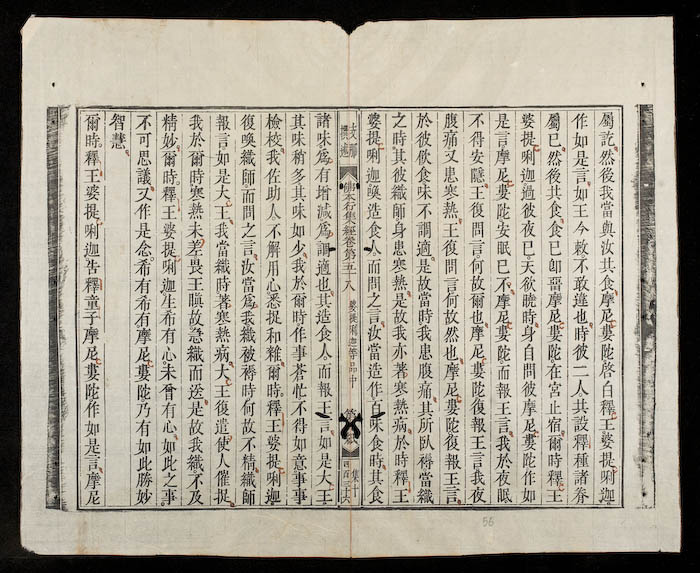 屬訖然後我當與汝共食摩尼婁陀啓白釋王婆提唎迦
作如是言如王今敕不敢違也時彼二人共設釋種諸眷
屬已然後共食食已卽畱摩尼婁陀在宮止宿爾時釋王
婆提唎迦過彼夜已天欲曉時身自問彼摩尼婁陀作如
是言摩尼婁陀安眠已不摩尼婁陀而報王言我於夜眠
不得安隱王復問言何故爾也摩尼婁陀復報王言我夜
腹痛又患寒熱王復問言何故然也摩尼婁陀復報王言
於彼飮食味不調適是故當時我患腹痛其所臥褥當織
之時其彼織師身患寒熱是故我亦著寒熱病於時釋王
婆提唎迦喚造食人而問之言汝當造作百味食時其食
支那
撰述
佛本行集經卷第五十八
婆提唎迦等品中
集十
諸味爲有增減爲調適也其造食人而報王言如是大王
其味稍多其味如少我於爾時作事蒼忙不得如意事事
檢校我佐助人不解用心悉捉和雜爾時釋王婆提唎迦
復喚織師而問之言汝當爲我織被褥時何故不精織師
報言如是大王我當織時著寒熱病大王復遣使人催捉
我於爾時寒熱未差畏王瞋故急織而送是故我織不及
精妙爾時釋王婆提唎迦生希有心未曾有心如此之事
不可思議又作是念希有希有摩尼婁陀乃有如此勝妙
智慧
爾時釋王婆提唎迦告釋童子摩尼婁陀作如是言摩尼
56